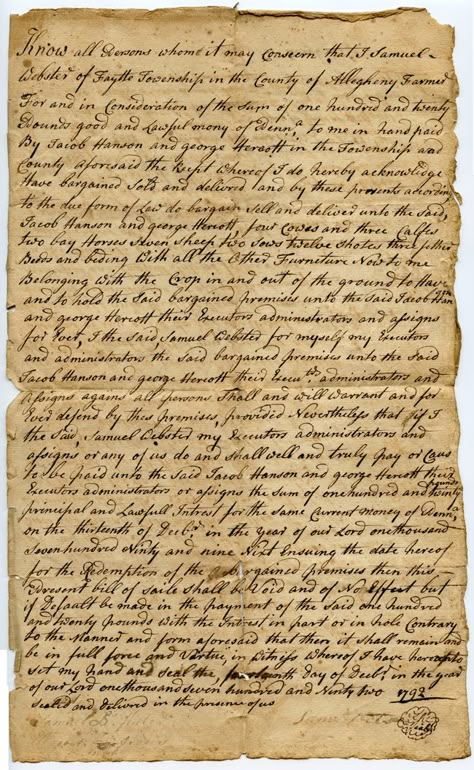 Know all Persons whome it may Concern that I Samuel
Webster of Faytte Township in the County of Allegheny Farmer
For and in Consideration of the Sum of one hundred and twenty
Pounds good and Lawful mony of Penn,a to me in hand paid
By Jacob Hanson and george Hercott in the Township and
County aforesaid the Recept Whereof I do hereby acknowlidge
Have bargained Sold and delivred and by these presents according
to the due form of Law do bargain Sell and deliver unto the Said
Jacob Hanson and george Hercott, four Cowes and three Calfes
two bay Horses Seven Sheep two Sows twelve Shotes three fether
Beds and beding With all the Other Furniture Now to me
Belonging With the Crop in and out of the ground to Have
and to hold the Said bargained premises unto the Said Jacob Hanson
and george Hercott their Executors administrators and assigns
for Ever, I the Said Samuel Webster for myself my Executors
and administrators the Said bargained premises unto the Said
Jacob Hanson and george Hercott their Execu,ts administrators and
assigns agains all persons Shall and will Warrant and for
Ever defend by thes premises, provided Nevertheless that if I
the Said Samuel Webster my Executors administrators and
assigns or any of us do and shall well and truly pay or Caus
to be paid unto the Said Jacob Hanson and george Hercott their
Executors administrators or assigns the Sum of one hundred and twenty pounds
principal and Lawfull Intrest for the Same Current money of Penn,a
on the thirteenth of Decbr in the year of our Lord onethousand
Seven hundred Ninty and nine Next Ensuing the date hereof
for the Redemption of the Bargained premises then this
Present bill of Saile Shall be Void and of No Effect but
if Default be made in the payment of the Said one hundred
and twenty pounds With the Intrest in part or in hole Contrary
to the Manner and form aforesaid that then it Shall remain and
be in full force and Vartue, in Witness Whereof I have hereunto
set my hand and Seal the, fourteenth Day of Decbr in the year
of our Lord onethousand Seven hundred and Ninty two 1792
Sealed and Delivred in the presence of us